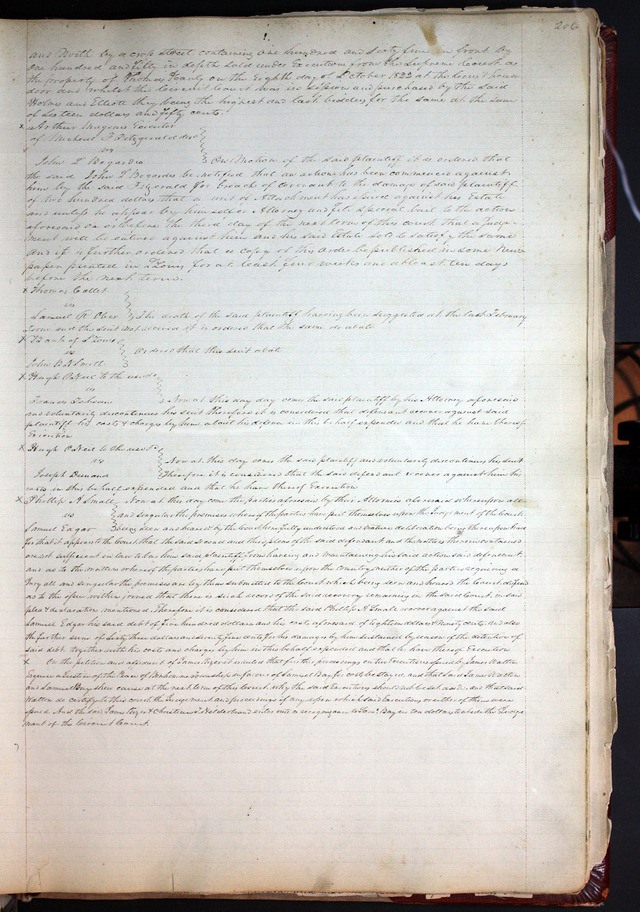 206
and North by a cross street containing One hundred and Sixty five in front by
One hundred and fifty in depth Sold under Execution from the Supreme Court as
the property of Thomas on the Eighth day of October 1822 at the Court house
door and whilst the Circuit Court was in session and purchased by the said
Holmes and Elliott they being the highest and last bidders for the same at the sum
of Sixteen dollars and fifty cents.
x Arthur Magenis Executor
of Michael P. Fitzgerald decd
vs
John L Bogardus } On Motion of the said plaintiff it is ordered that
the said John L Bogardus be notified that an action has been commenced against
him by the said Fitzgerald for breach of Covenant to the damage of said plaintiff
of two hundred dollars that a writ of Attachment has issued against his Estate
and unless he appear by himself or Attorney and file Special bail to the action
aforesaid on or before the third day of the next term of this Court that a Judge-
ment will be entered against him and his said Estate sold to satisfy the same
and it is further ordered that a Copy of this order be published in some News
paper printed in St Louis for at least four weeks and at least ten days
before the next term.
x Thomas
vs
Samuel R Ober } The death of the said plaintiff having been suggested at the last February
term and the suit not revived it is ordered that the same do abate
x Bank of St Louis
vs } Ordered that this suit abate
John B N Smith
x Hugh O'Neil to the use &c
vs
Francis } Now at this day come the said plaintiff by his Attorney aforesaid
and voluntarily discontinues his suit therefore it is considered that defendant recover against said
plaintiff his costs & charges by him about his defence in this behalf expended and that he have thereof
Execution
x Hugh O'Neil to the use &c
vs } Now at this day comes the said plaintiff and voluntarily discontinues his suit
Joseph } Therefore it is considered that the said defendant recover against him his
costs in this behalf expended and that he have thereof Execution
x Phillip A Small } Now at this day come the parties aforesaid by their Attornies aforesaid whereupon all
vs } and singular the premises whereof the parties have put themselves upon the Judgment of the Court
Samuel Edgar } being seen and heard by the Court here fully understood and mature deliberation being thereupon had
for that it appears to the Court that the second and third pleas of the said defendant and the matters therein contained
are not sufficient in law to bar him said plaintiff from having and maintaining his said action said defendant
and as to the matters whereof the parties have put themselves upon the Country neither of the parties requiring a
Jury all and singular the premises are by them submitted to the Court which being seen and heard the Court
as to the joined that there is such record of the said recovery remaining in the said Court, in said
plea & declaration mentioned. Therefore it is considered that the said Phillip A Small recover against the said
Samuel Edgar his said debt of Five hundred dollars and his costs aforesaid of Eighteen dollars & ninety cents and also
the further sum of Sixty three dollars and seventy five cents for his damages by him sustained by reason of the detention of
said debt together with his costs and charges by him in this behalf expended and that he have thereof Execution
x On the petition and affidavit of James it is ordered that further proceedings on two Executions issued by James Walton
Esquire a Justice of the Peace of Township in favor of Samuel Bay for cost be stayed, and that said James Walton
and Samuel Bay shew cause at the next term of this Court why the said Executions should not be set aside, and that said
Walton do certify to this court the Judgement and proceedings if any upon which said Executions or either of them were
issued. And the said James & Christian enter into a recognizance to Saml Bay in ten dollars to abide the Judge-
ment of the Circuit Court.